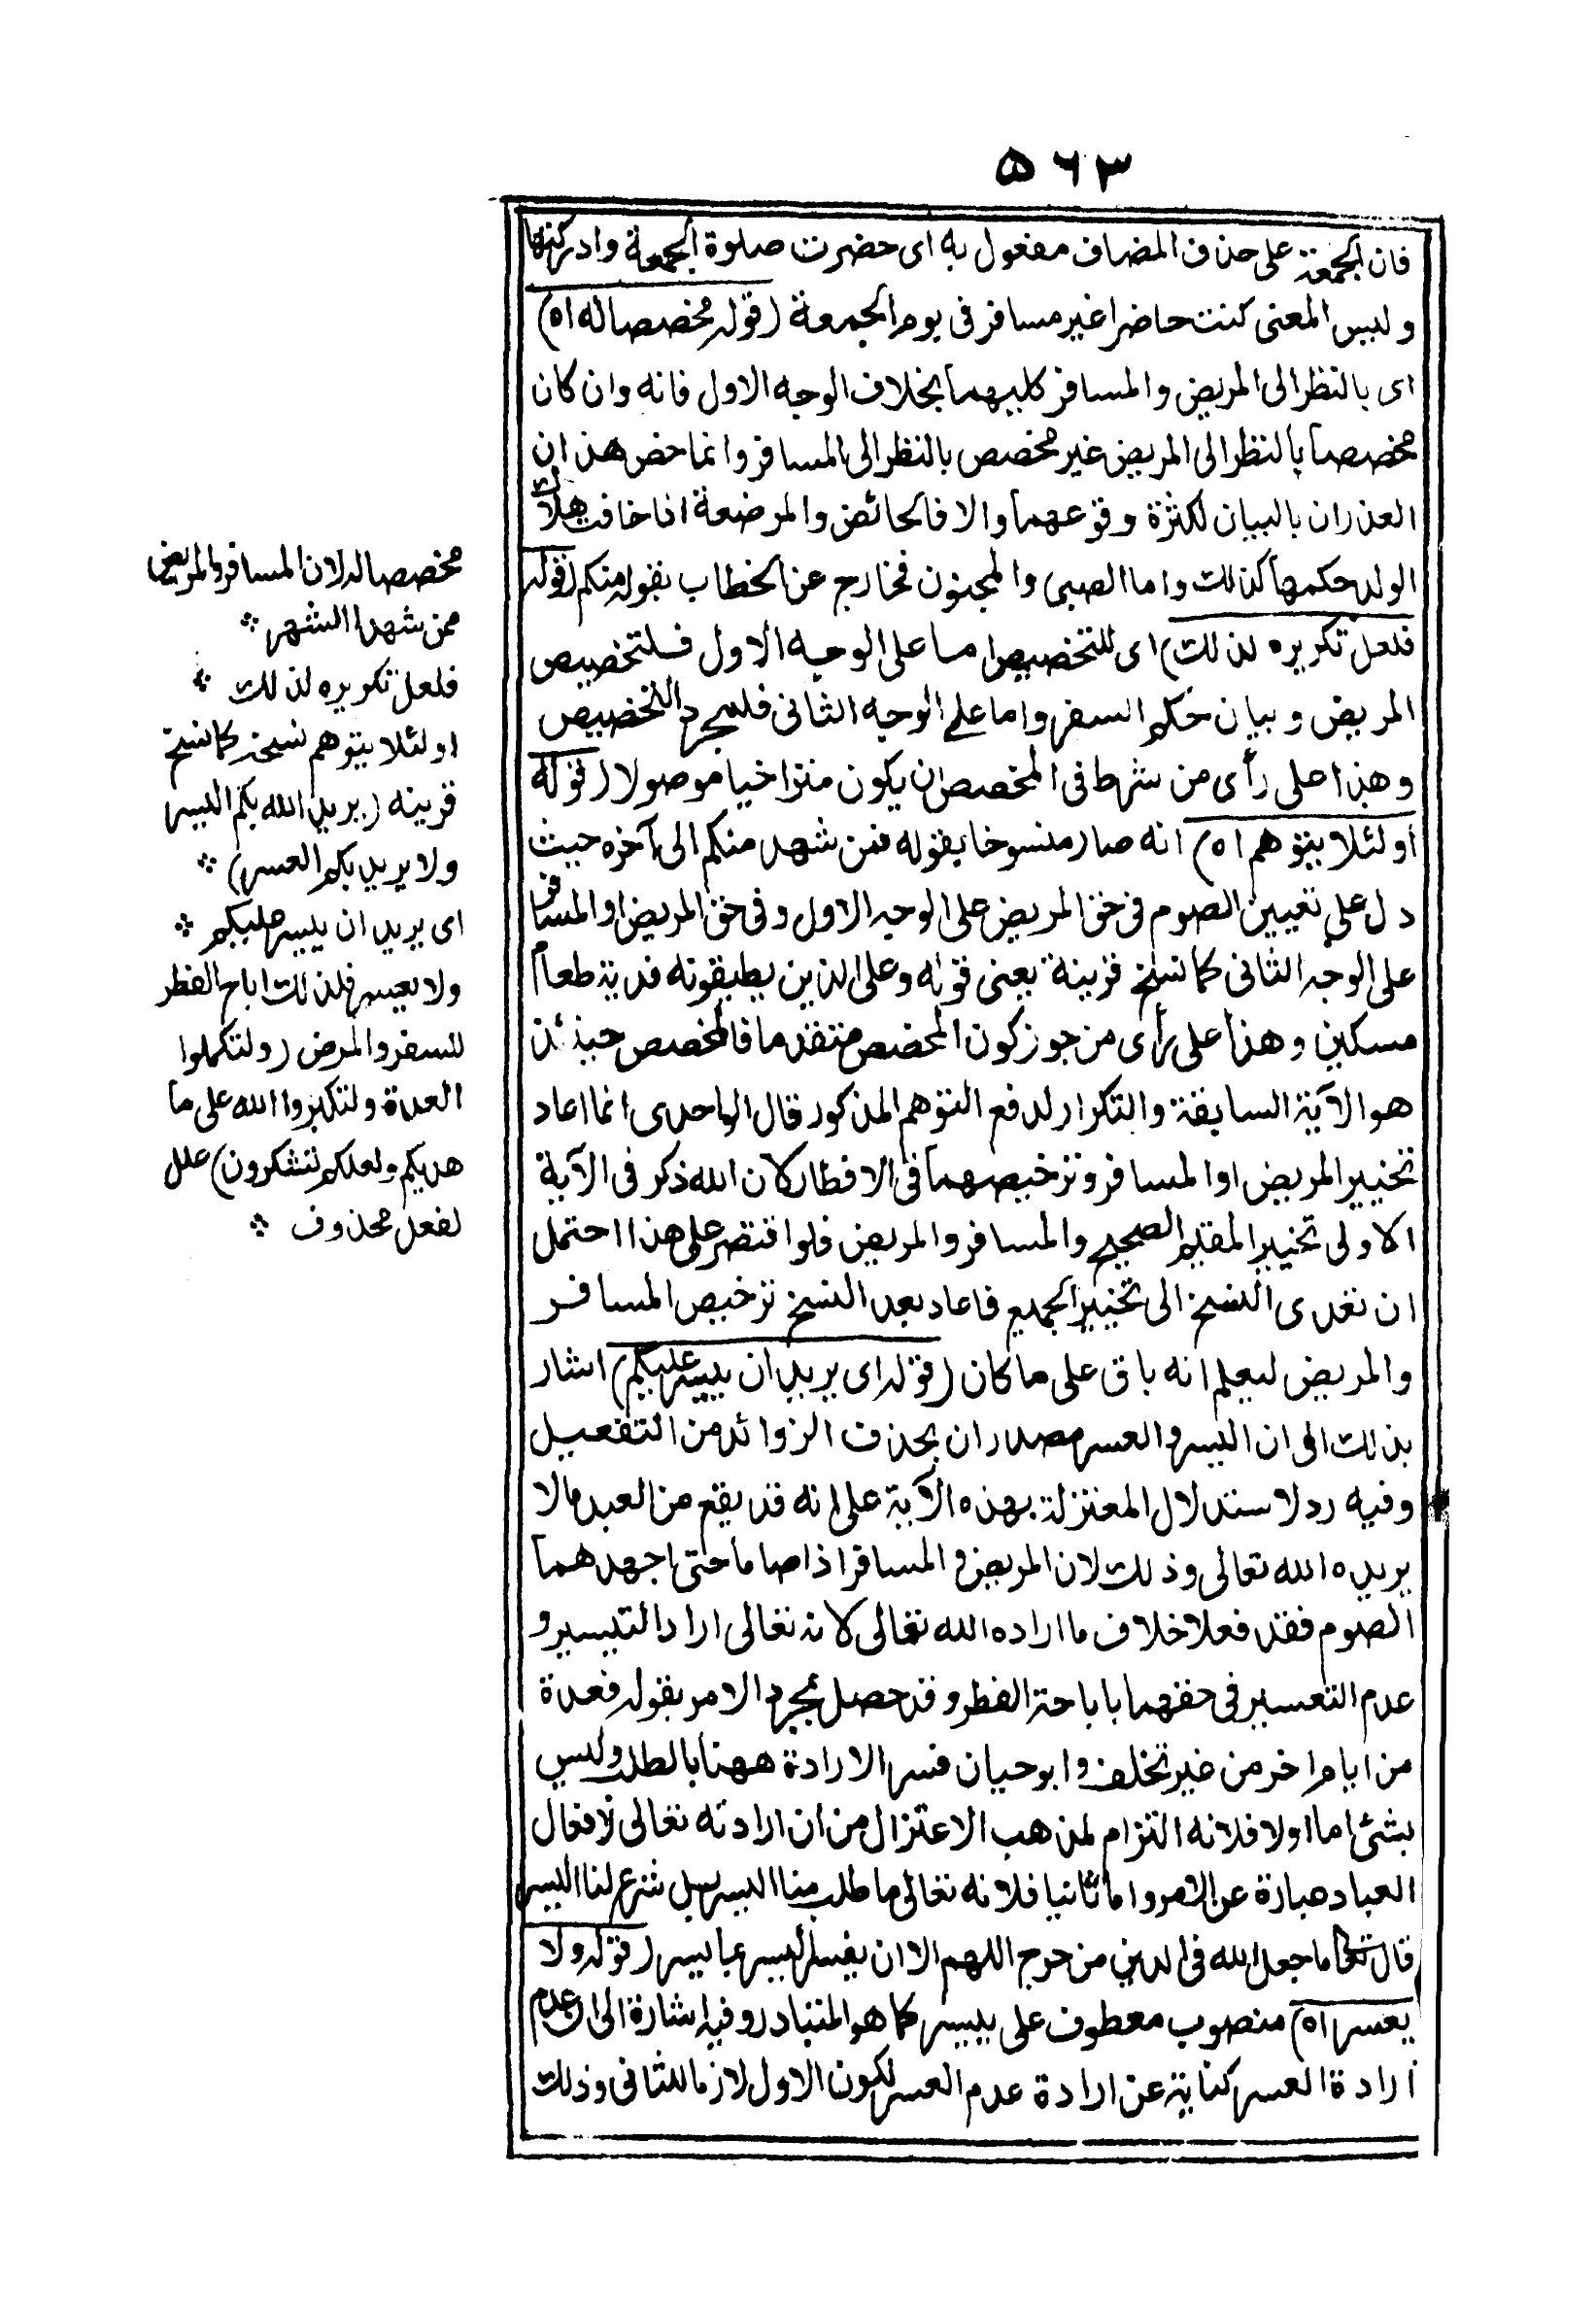 ۵۶۳
فان الجمعة على حذف المضاف مفعول به اى حضرت صلوة الجمعة وادركتها
وليس المعنى كنت حاضرا غير مسافر فى يوم الجمعة (قوله مخصصا له اه)
اى بالنظر الى المريض والمسافر كليهما بخلاف الوجه الاول فانه وان كان
مخصصا بالنظر الى المريض غير مخصص بالنظر الى المسافر وانما خص هذان
العذران بالبيان لكثرة وقوعهما والا فالحائض والمرضعة اذا خافت هلاك
الولد حكمها كذلك واما الصبى والمجنون فخارج عن الخطاب بقوله منكم (قوله
فلعل تكريره لذلك) اى للتخصيص اما على الوجه الاول فلتخصيص
المريض وبيان حكم السفر واما على الوجه الثانى فلمجرد التخصيص
وهذا على رأى من شرط فى المخصص ان يكون متراخيا موصولا (قوله
او لئلا يتوهم اه) انه صار منسوخا بقوله فمن شهد منكم الى آخره حيث
دل على تعيين الصوم فى حق المريض على الوجه الاول وفى حق المريض او المسافر
على الوجه الثانى كما نسخ قرينة يعنى قوله وعلى الذين يطيقونه فدية طعام
مسكين وهذا على رأى من جوز كون المخصص متقدما فالمخصص حينئذ
هو الآية السابقة والتكرار لدفع التوهم المذكور قال الواحدى انما اعاد
تخيير المريض او المسافر وترخيصهما فى الافطار لان الله ذكر فى الآية
الاولى تخيير المقيم الصحيح والمسافر والمريض فلو اقتصر على هذا احتمل
ان تعدى النسخ الى تخيير الجميع فاعاد بعد النسخ ترخيص المسافر
والمريض ليعلم انه باق على ما كان (قوله اى يريد ان ييسر عليكم) اشار
بذلك الى ان اليسر والعسر مصدران بحذف الزوائد من التفعيل
وفيه رد لاستدلال المعتزلة بهذه الآية على انه قد يقع من العبد مالا
يريده الله تعالى وذلك لان المريض والمسافر اذا صاما حتى اجهدهما
الصوم فقد فعلا خلاف ما اراده الله تعالى لانه تعالى اراد التيسير و
عدم التعسير فى حقهما باباحة الفطر وقد حصل بمجرد الامر بقوله فعدة
من ايام اخر من غير تخلف وابو حيان فسر الارادة ههنا بالطلب وليس
بشئ اما اولا فلانه التزام لمذهب الاعتزال من ان ارادته تعالى لافعال
العباد عبارة عن الامر واما ثانيا فلانه تعالى ما طلب منا اليسر بل شرع لنا اليسر
قال تعالى ما جعل الله فى الدين من حرج اللهم الا ان يفسر اليسر بما ييسر (قوله ولا
يعسر اه) منصوب معطوف على ييسر كما هو المتبادر وفيه اشارة الى ان عدم
ارادة العسر كناية عن ارادة عدم العسر لكون الاول لازما للثانى وذلك
مخصصا له لان المسافر والمريض
ممن شهد الشهر ❖
فلعل تكريره لذلك ❖
او لئلا يتوهم نسخه كما نسخ
قرينه (يريد الله بكم اليسر
ولا يريد بكم العسر) ❖
اى يريد ان ييسر عليكم ❖
ولا يعسر فلذلك اباح الفطر
للسفر والمرض (ولتكملوا
العدة ولتكبروا الله على ما
هديكم ولعلكم تشكرون) علل
لفعل محذوف ❖